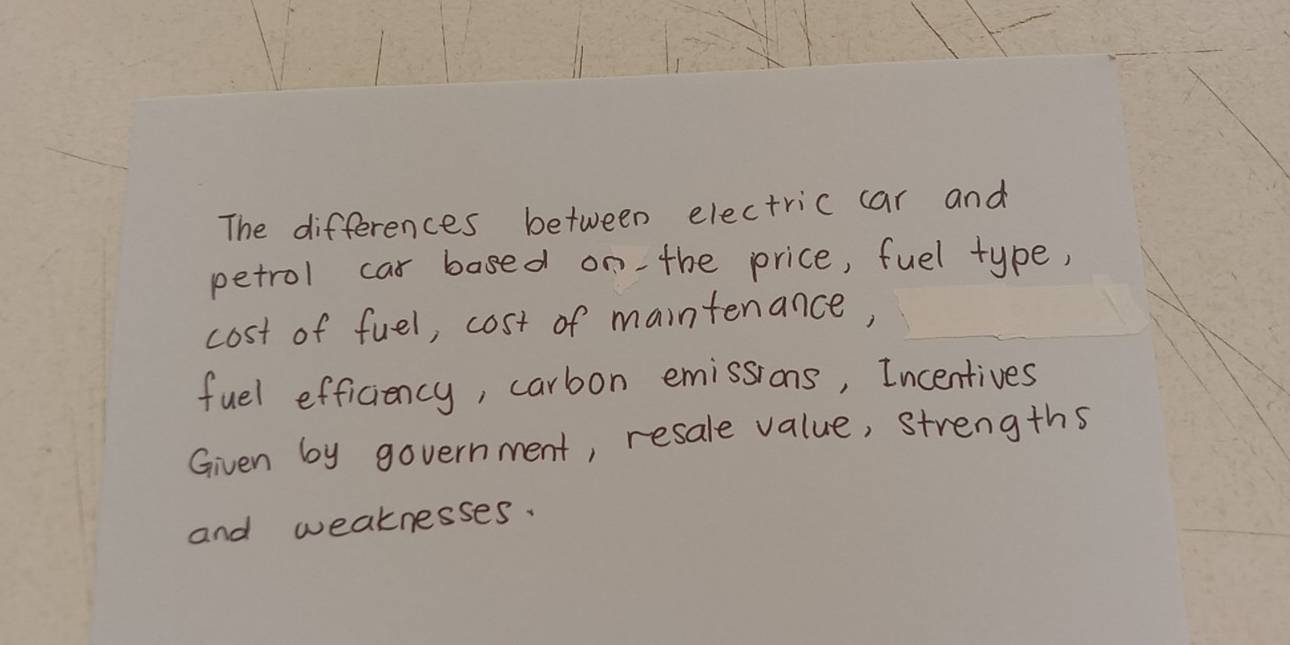 The differences between electric car and
petrol car based on the price, fuel type,
cost of fuel, cost of maintenance,
fuel efficiency, carbon emissions, Incentives
Given by government, resale value, strengths
and weaknesses.